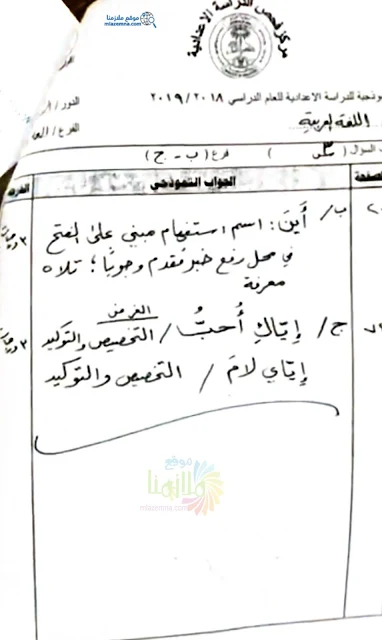 موقع ملازمنا
mlazemna.com
مركز فحص الدراسة الاعدادية
نموذجية للدراسة الاعدادية للعام الدراسي ٢٠١٨/ ٢٠١٩
اللغة العربية
السؤال ( ) فرع ( ب - ج )
الجواب النموذجي
ب/ أَينَ: اسم استفهام مبني على الفتح
في محل رفع خبر مقدم وجوبًا؛ تلاه
معرفة
الغرض
ج/ إيّاكِ أُحبُّ / التخصيص والتوكيد
إيّاي لامَ / التخصيص والتوكيد
موقع
ملازمنا
mlazemna.com